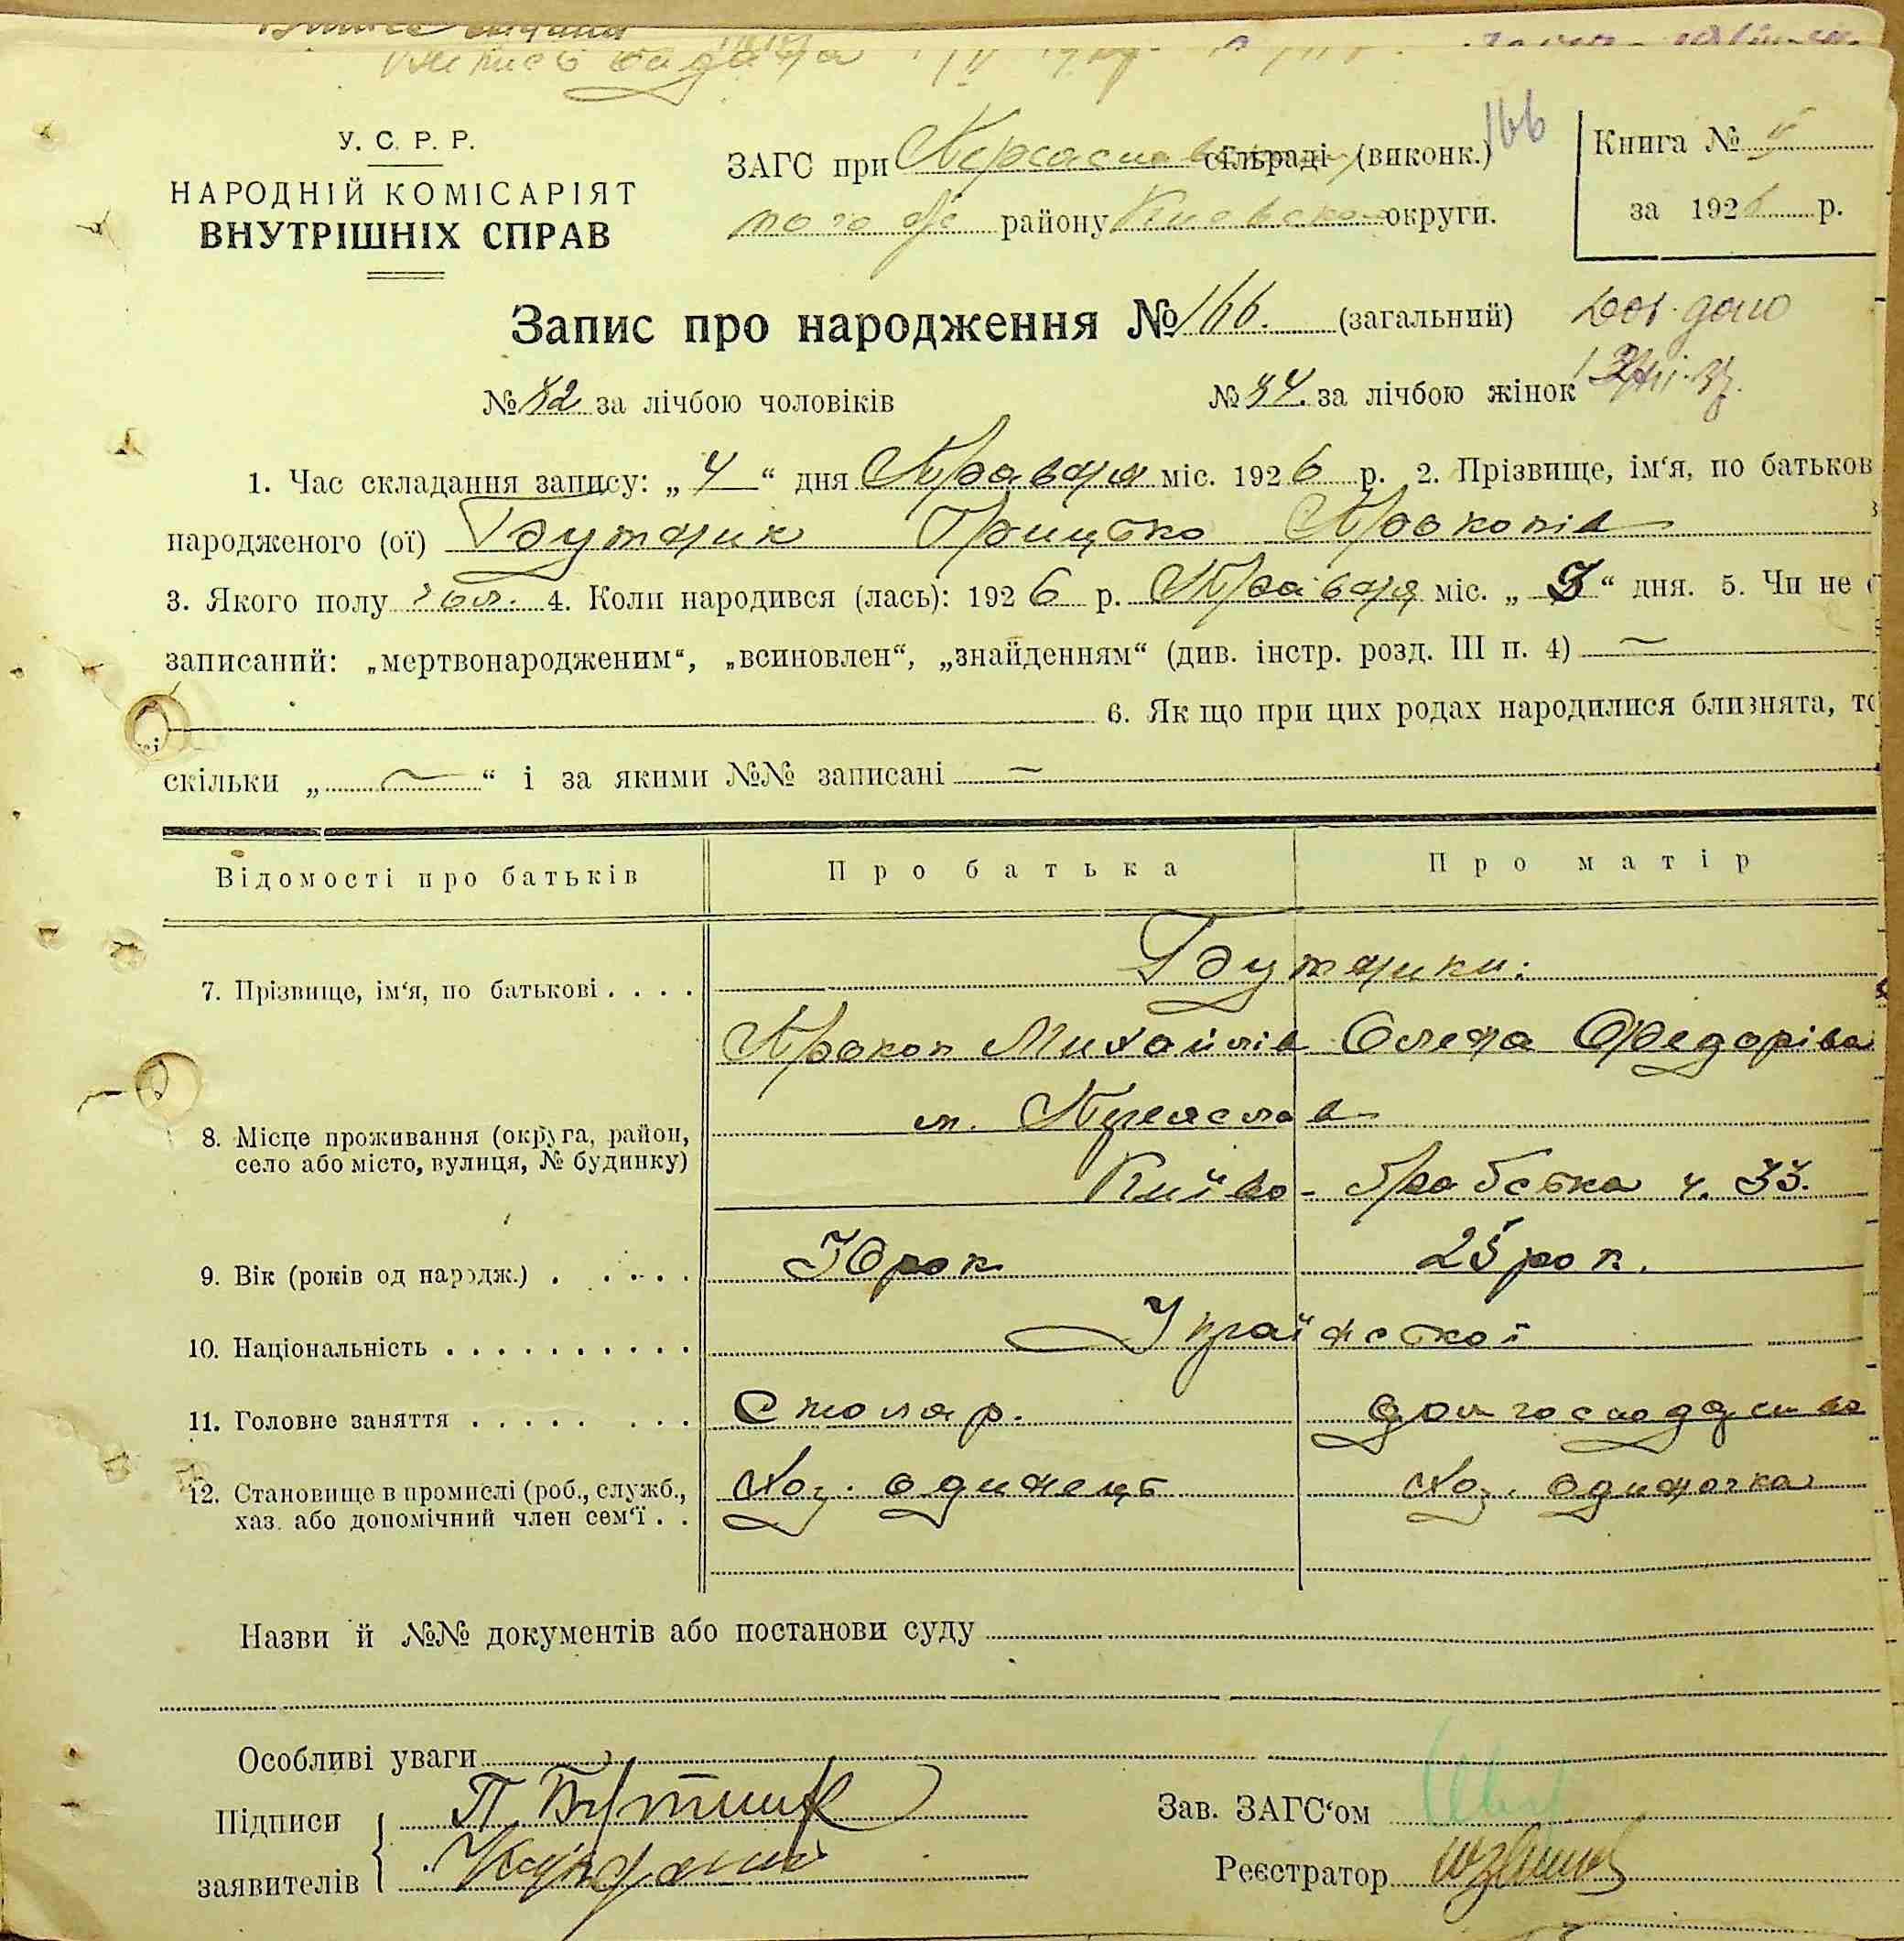 166
У. С. Р. Р.
НАРОДНІЙ КОМІСАРІЯТ
ВНУТРІШНІХ СПРАВ
ЗАГС при сільраді (виконк.)
району округи.
Книга №
за 1926 р.
Запис про народження № 166. (загальний)
№ 82 за лічбою чоловіків № 84. за лічбою жінок
1. Час складання запису: „ 4 “ дня Травня міс. 1926 р. 2. Прізвище, ім‘я, по батьков
народженого (ої) Бутник Грицько Прокопів
3. Якого полу чол. 4. Коли народився (лась): 1926 р. Травня міс. „ “ дня. 5. Чи не
записаний: „мертвонародженим“, „всиновлен“, „знайденням“ (див. інстр. розд. III п. 4) —
6. Як що при цих родах народилися близнята, то
скільки „ — “ і за якими №№ записані —
Відомості про батьків Про батька Про матір
7. Прізвище, ім‘я, по батькові . . . . Бутники.
Прокоп Михайлів Олена Федорівна
8. Місце проживання (округа, район, м. Переяслав
село або місто, вулиця, № будинку) Київо- ч. 33.
9. Вік (років од народж.) . . . . . 30 рок 25 рок.
10. Національність . . . . . . . . . . Української
11. Головне заняття . . . . . . . . Столяр. дом господарство
12. Становище в промислі (роб., служб., Хоз. одинець Хоз. одиночка
хаз. або допомічний член сем‘ї . .
Назви й №№ документів або постанови суду
Особливі уваги
Підписи П. Бутник Зав. ЗАГС‘ом
заявителів Реєстратор